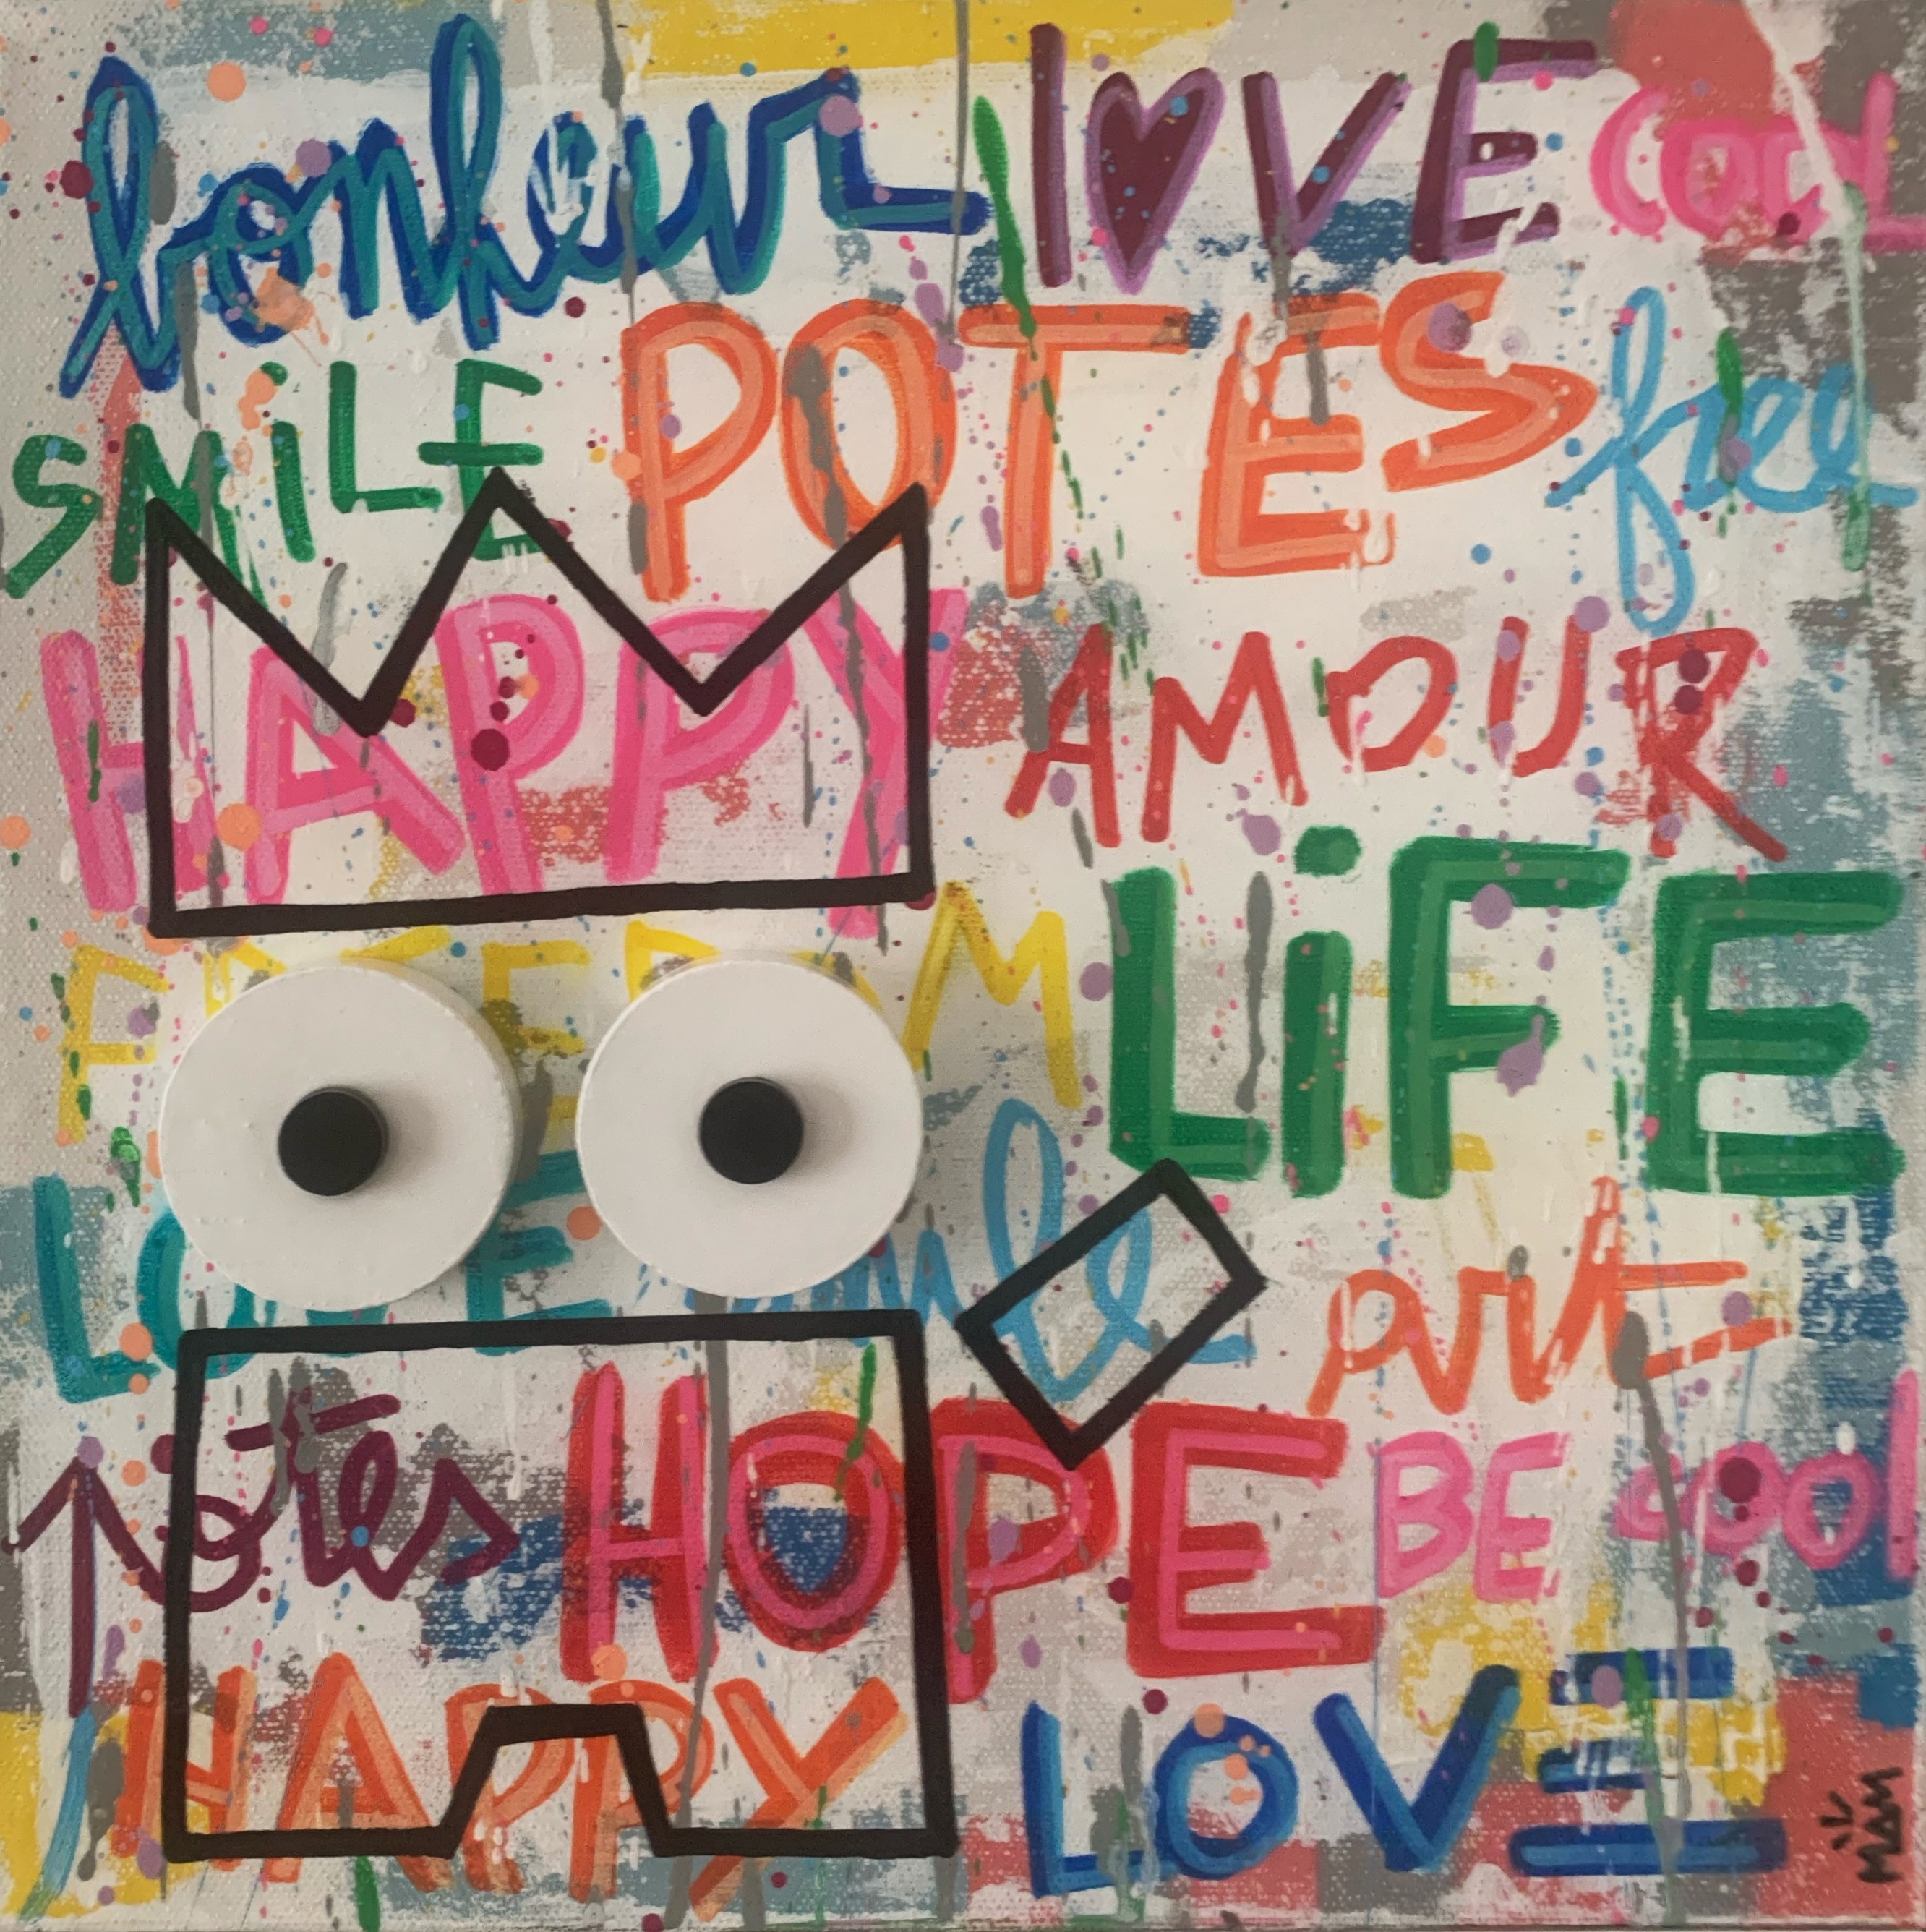 bonheur LOVE COOL
SMiLE POTES free
HAPPY AMOUR
FREEDOM LiFE
LOVE art
POTES HOPE BE COOL
HAPPY LOVE
MAM